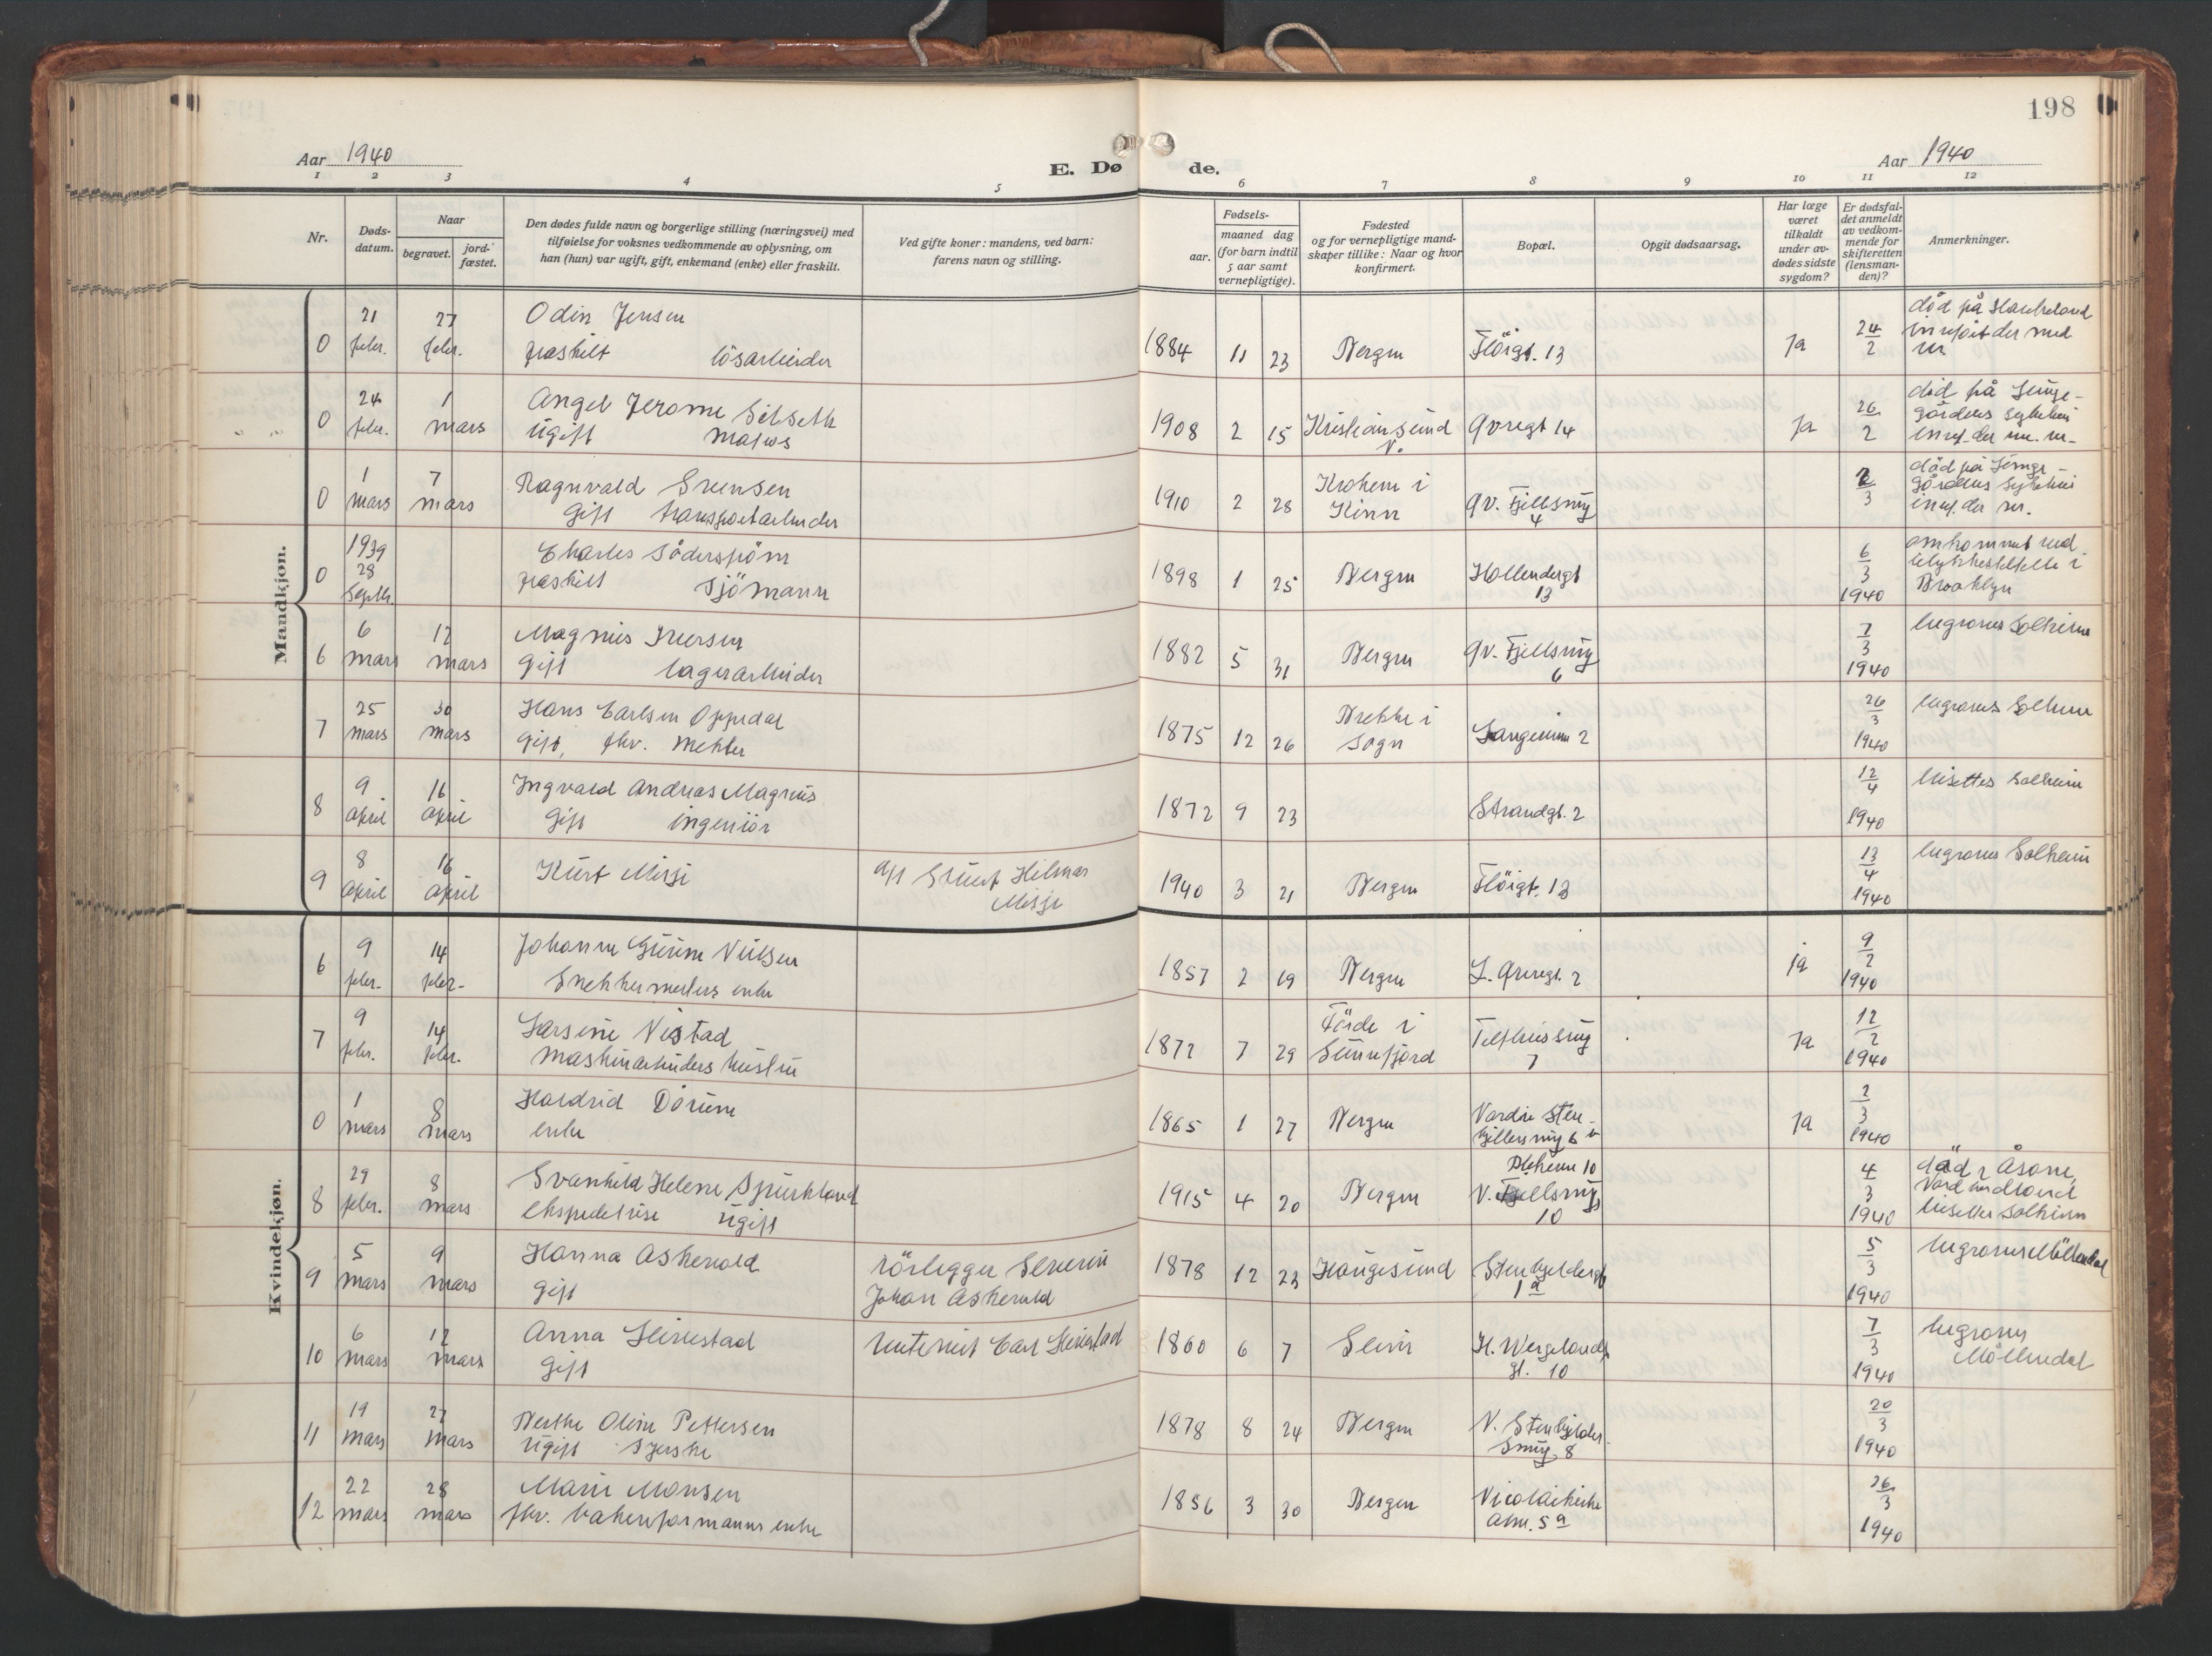 198
Aar 1940
E. Dø
de.
Aar 1940
1 2 3 4 5 6 7 8 9 10 11 12
Nr.
Døds-
datum.
Naar
begravet.
jord-
fæstet.
Den dødes fulde navn og borgerlige stilling (næringsvei) med
tilføielse for voksnes vedkommende av oplysning, om
han (hun) var ugift, gift, enkemand (enke) eller fraskilt.
Ved gifte koner: mandens, ved barn:
farens navn og stilling.
Fødsels-
aar.
maaned dag
(for barn indtil
5 aar samt
vernepligtige).
Fødested
og for vernepligtige mand-
skaper tillike: Naar og hvor
konfirmert.
Bopæl.
Opgit dødsaarsag.
Har læge
været
tilkaldt
under av-
dødes sidste
sygdom?
Er dødsfal-
det anmeldt
av vedkom-
mende for
skifteretten
(lensman-
den)?
Anmerkninger.
Mandkjøn.
0 21 febr. 27 febr. Odin Jensen
fraskilt løsarbeider
1884 11 23 Bergen Fløigt. 13 Ja 24/2 død på Haukeland
0 24 febr. 1 mars Angel Jerome Sètseth
ugift matros
1908 2 15 Kristiansund N. Øvregt 14 Ja 26/2 død på Lunge-
gårdens sykehus
0 1 mars 7 mars Ragnvald Svensen
gift transportarbeider
1910 2 28 Kinn Øv. Fjellsmug 4 2/3 død på Lunge-
gårdens sykehus
0 1939 28 Septbr. Charles Søderstrøm
fraskilt Sjømann
1898 1 25 Bergen Hollendergt 13 6/3 1940 omkommet ved
Brooklyn
6 6 mars 12 mars Magnus Iversen
gift lagerarbeider
1882 5 31 Bergen Øv. Fjellsmug 6 7/3 1940 begraves Solheim
7 25 mars 30 mars Hans Carlsen Oppedal
Gift, fhv. Mekler
1875 12 26 Brekke i Sogn 2 26/3 1940 begraves Solheim
8 9 april 16 april Ingvald Andreas Magnus
gift ingeniør
1872 9 23 Strandgt. 2 12/4 1940 bisettes Solheim
9 8 april 16 april Kurt Misje Hilmar
Misje
1940 3 21 Bergen Fløigt. 13 13/4 1940 begraves Solheim
Kvindekjøn.
6 9 febr. 14 febr. Johanne Gurine Nilsen
Snekkermesters enke
1857 2 19 Bergen L. Øvregt. 2 ja 9/2 1940
7 9 febr. 14 febr. Larsine Nistad
maskinarbeiders hustru
1872 7 29 Førde i Sunnfjord 7 Ja 12/2 1940
0 1 mars 8 mars Haldrid Dorum
enke
1865 1 27 Bergen Ja 2/3 1940
8 29 febr. 8 mars Svanhild Helene Spurkland
Ekspeditrise ugift
1915 4 20 Bergen Blekevn 10
10 4/3 1940 død i Åsane,
Nordhordland
bisettes Solheim
9 5 mars 9 mars Hanna Askevold
gift
rørlegger Severin
Johan Askevold
1878 12 23 Haugesund Stenkjeldergt 1a 5/3 1940 begraves Møllendal
10 6 mars 12 mars Anna
gift
1860 6 7 H. Wergelands gt. 10 7/3 1940 begraves
Møllendal
11 19 mars 27 mars Berthe Oline Pettersen
ugift syerske
1878 8 24 Bergen N. Stenkjelder-
smug 8 20/3 1940
12 22 mars 28 mars Marie Monsen
fhv. bakerformanns enke
1856 3 30 Bergen Nicolaikirke
alm. 5a 26/3 1940